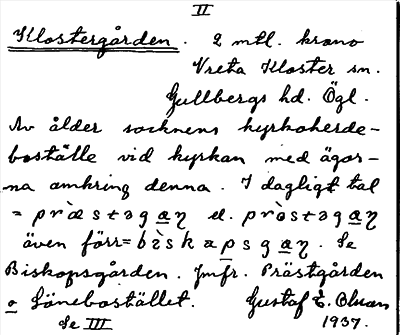 II
Klostergården. 2 mtl. krono
Vreta Kloster sn.
Gullbergs hd. Ögl.
Av ålder socknens kyrkoherde-
boställe vid kyrkan med ägor-
na omkring denna. I dagligt tal
= præ̀stəgaɳ el. prò̀stəgaɳ
även förr = bìskəpsgaɳ. Se
Biskopsgården. Jmfr. Prästgården
o Lönebostället. Gustaf E. Olsson
Se III 1937.